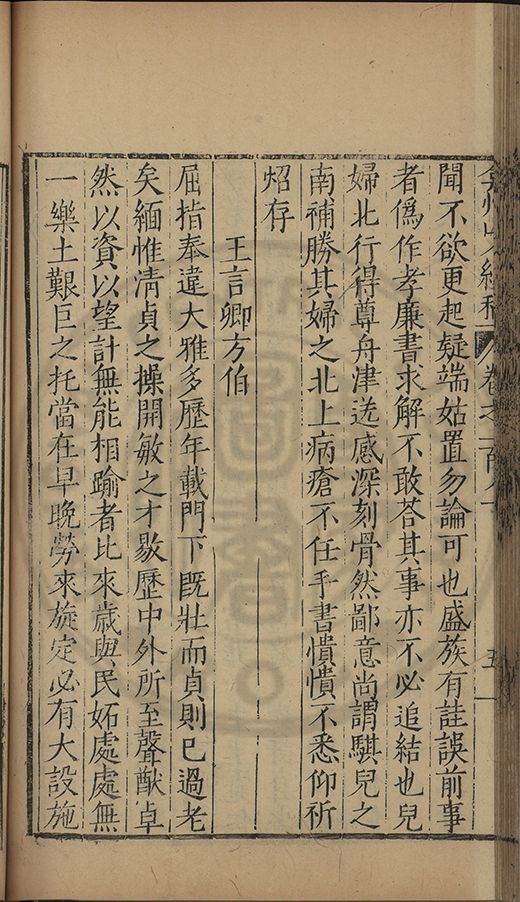 聞不欲更起疑端姑置勿論可也盛族有詿誤前事
者偽作孝廉書求解不敢荅其事亦不必追結也兒
婦北行得尊舟津送感深刻骨然鄙意尚謂騏兒之
南補勝其婦之北上病瘡不任手書憒憒不悉仰祈
炤存
王言卿方伯
屈指奉違大雅多歷年載門下既壯而貞則已過老
矣緬惟清貞之操開敏之才敭歷中外所至聲猷卓
然以資以望計無能相踰者比來歲與民妬處處無
一樂土艱巨之托當在早晚勞來旋定必有大設施